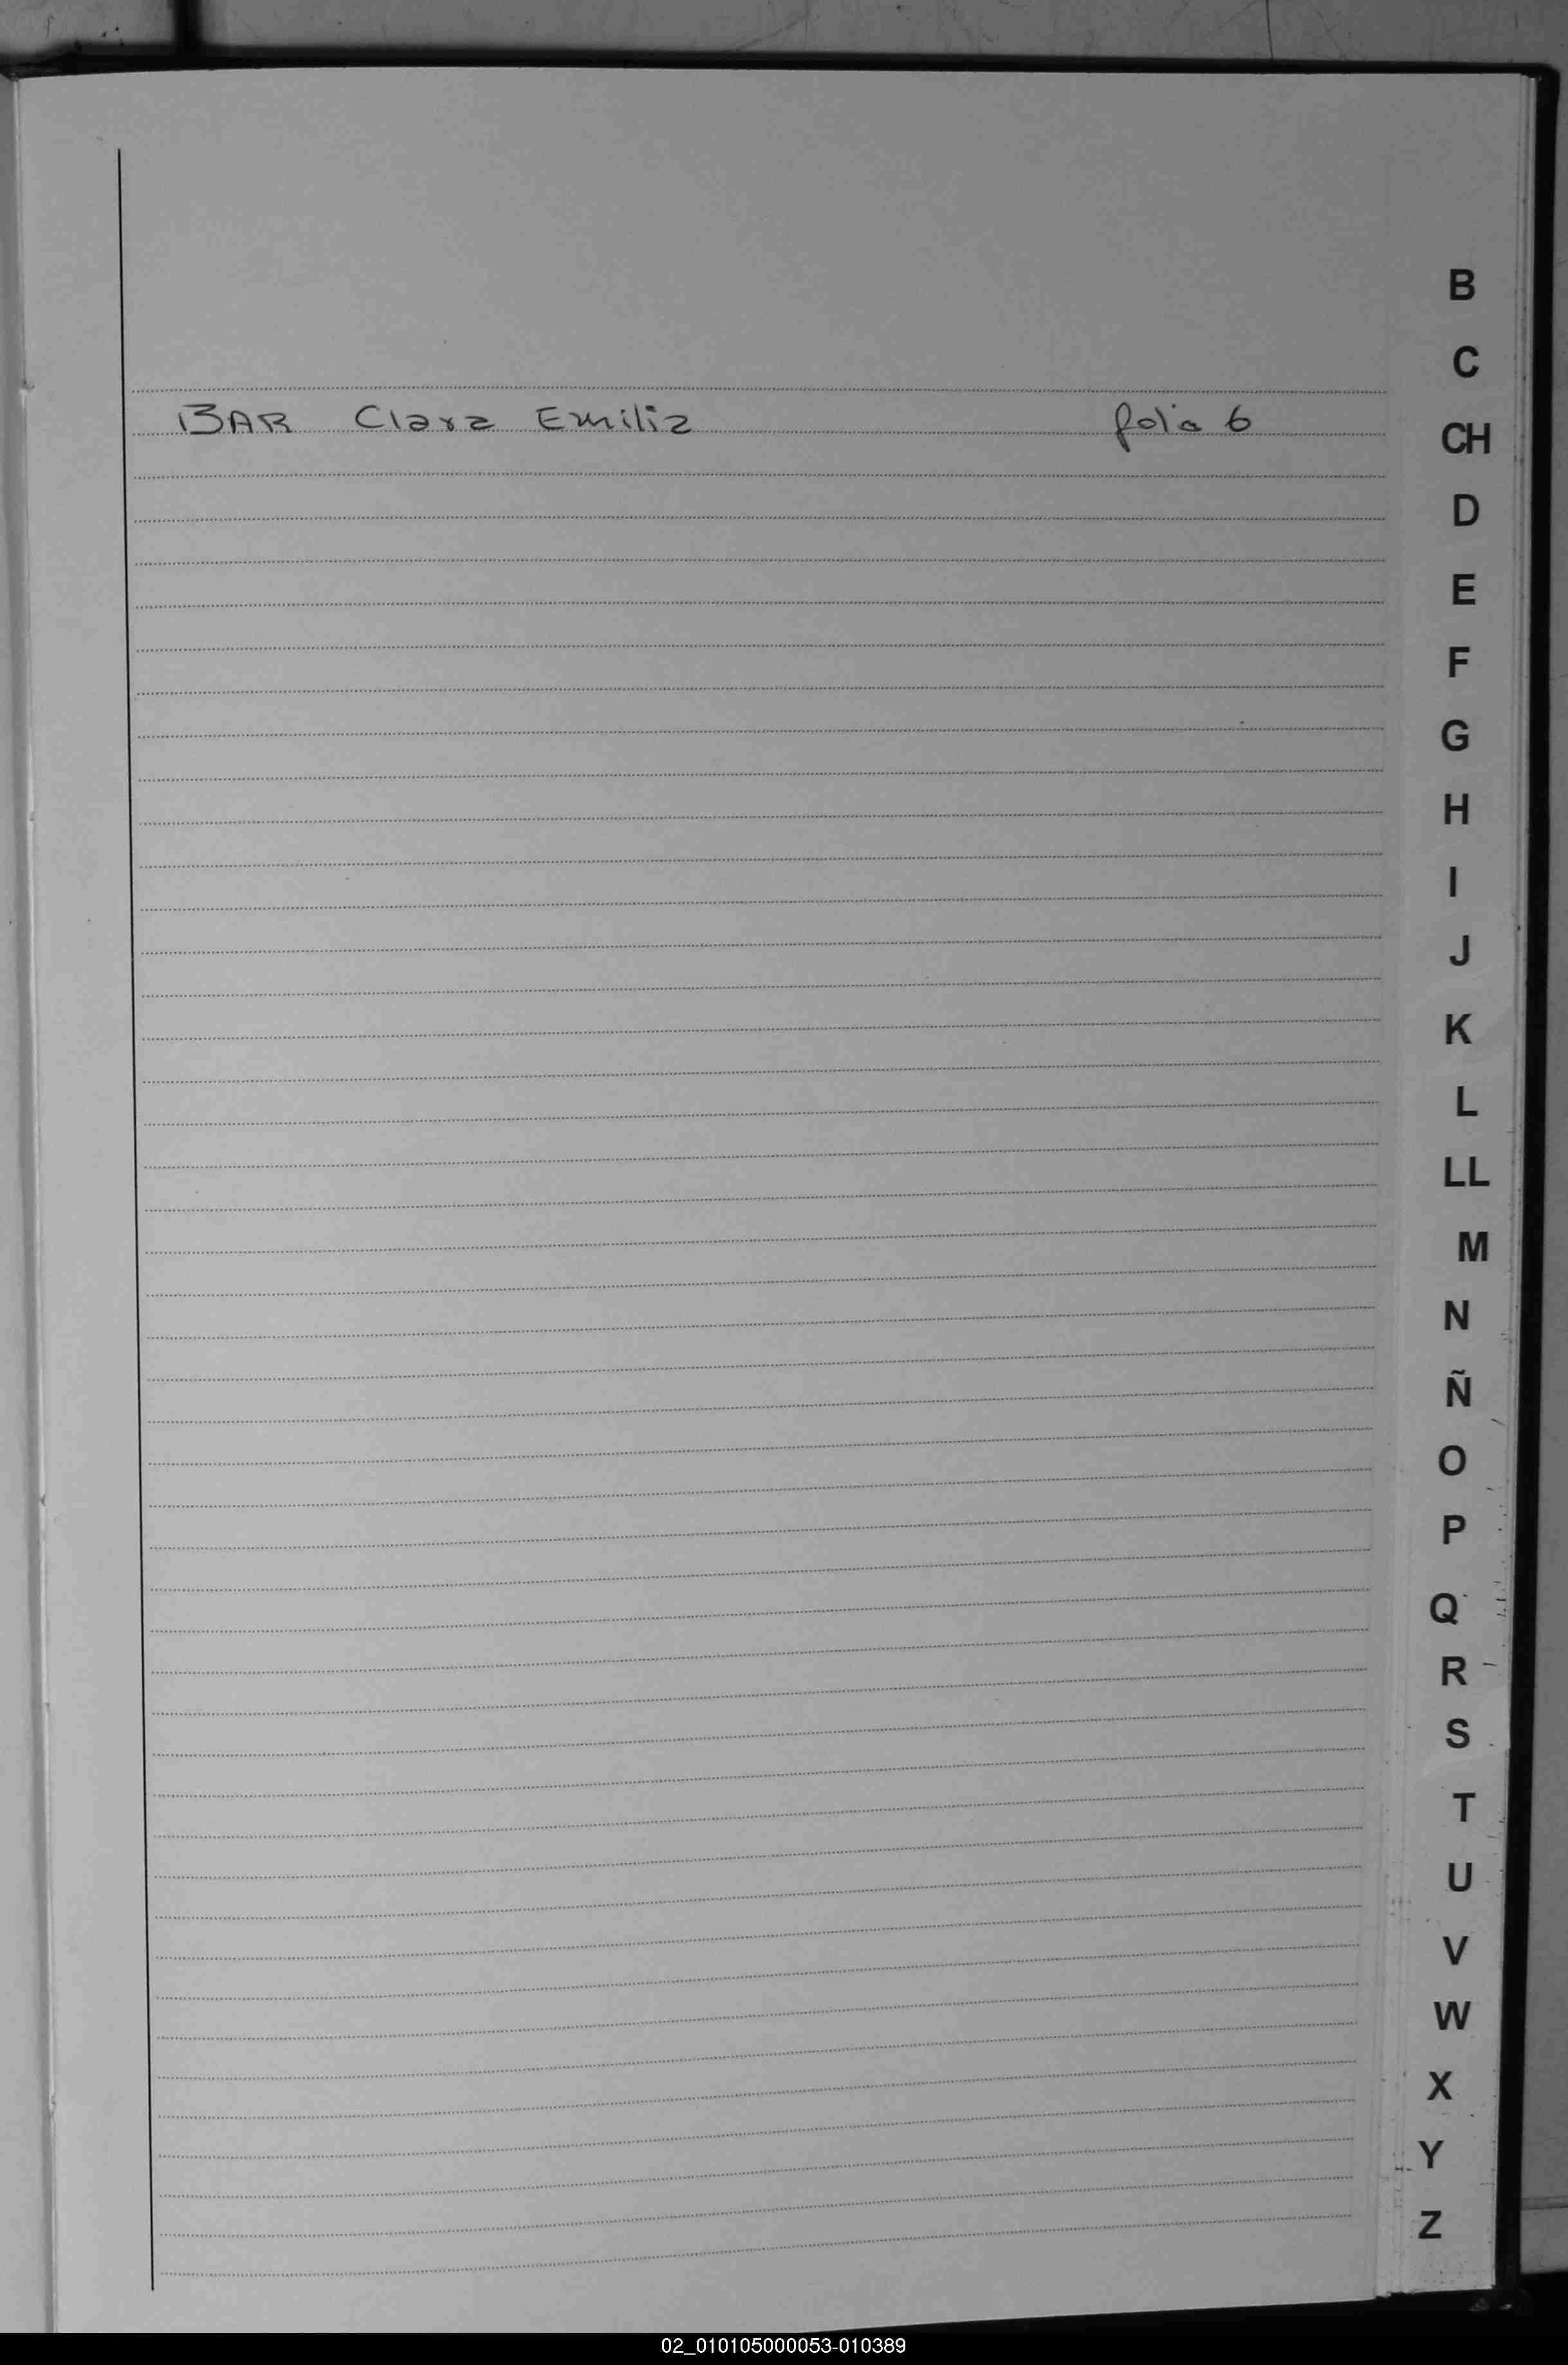 B
C
BAR Clara Emilia folio 6
CH
D
E
F
G
H
I
J
K
L
LL
M
N
Ñ
O
P
Q
R
S
T
U
V
W
X
Y
Z
02_010105000053-010389